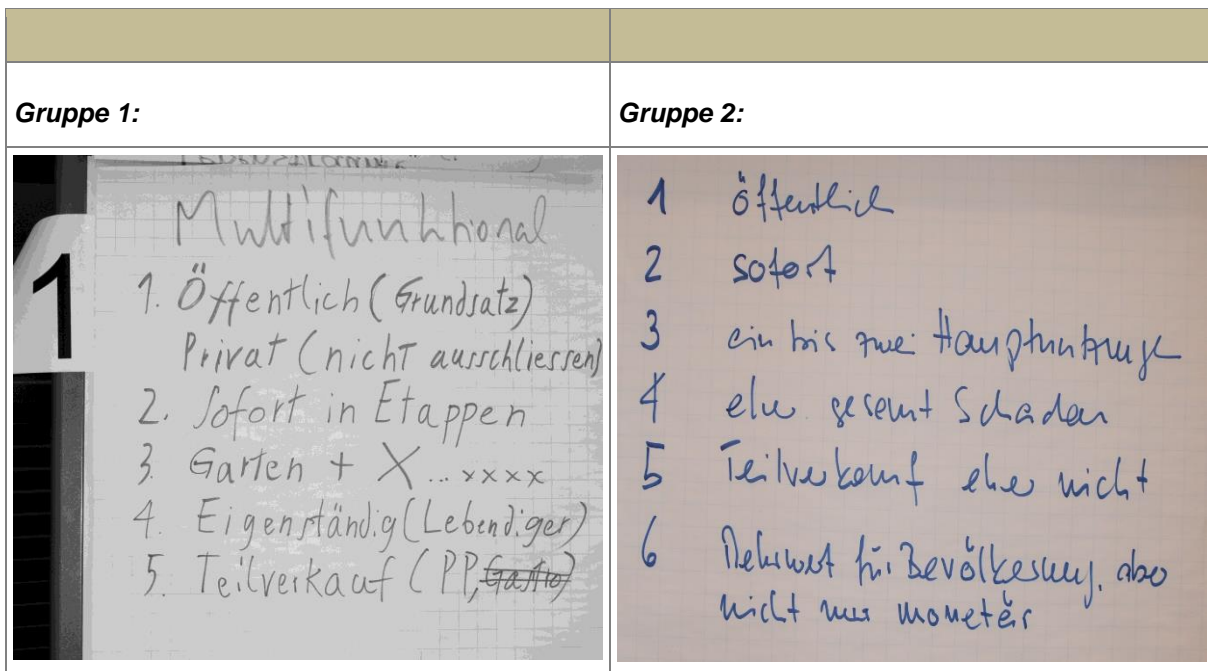 Gruppe 1:
Gruppe 2:
1
Multifunktional
1. Öffentlich (Grundsatz)
Privat (nicht ausschliessen)
2. Sofort in Etappen
3. Garten + X ... xxxx
4. Eigenständig (Lebendiger)
5. Teilverkauf (PP, Gastro)
1 öffentlich
2 sofort
3 ein bis zwei Hauptnutzungen
4 eher gesamt Schadau
5 Teilverkauf eher nicht
6 Mehrwert für Bevölkerung, also
nicht nur monetär